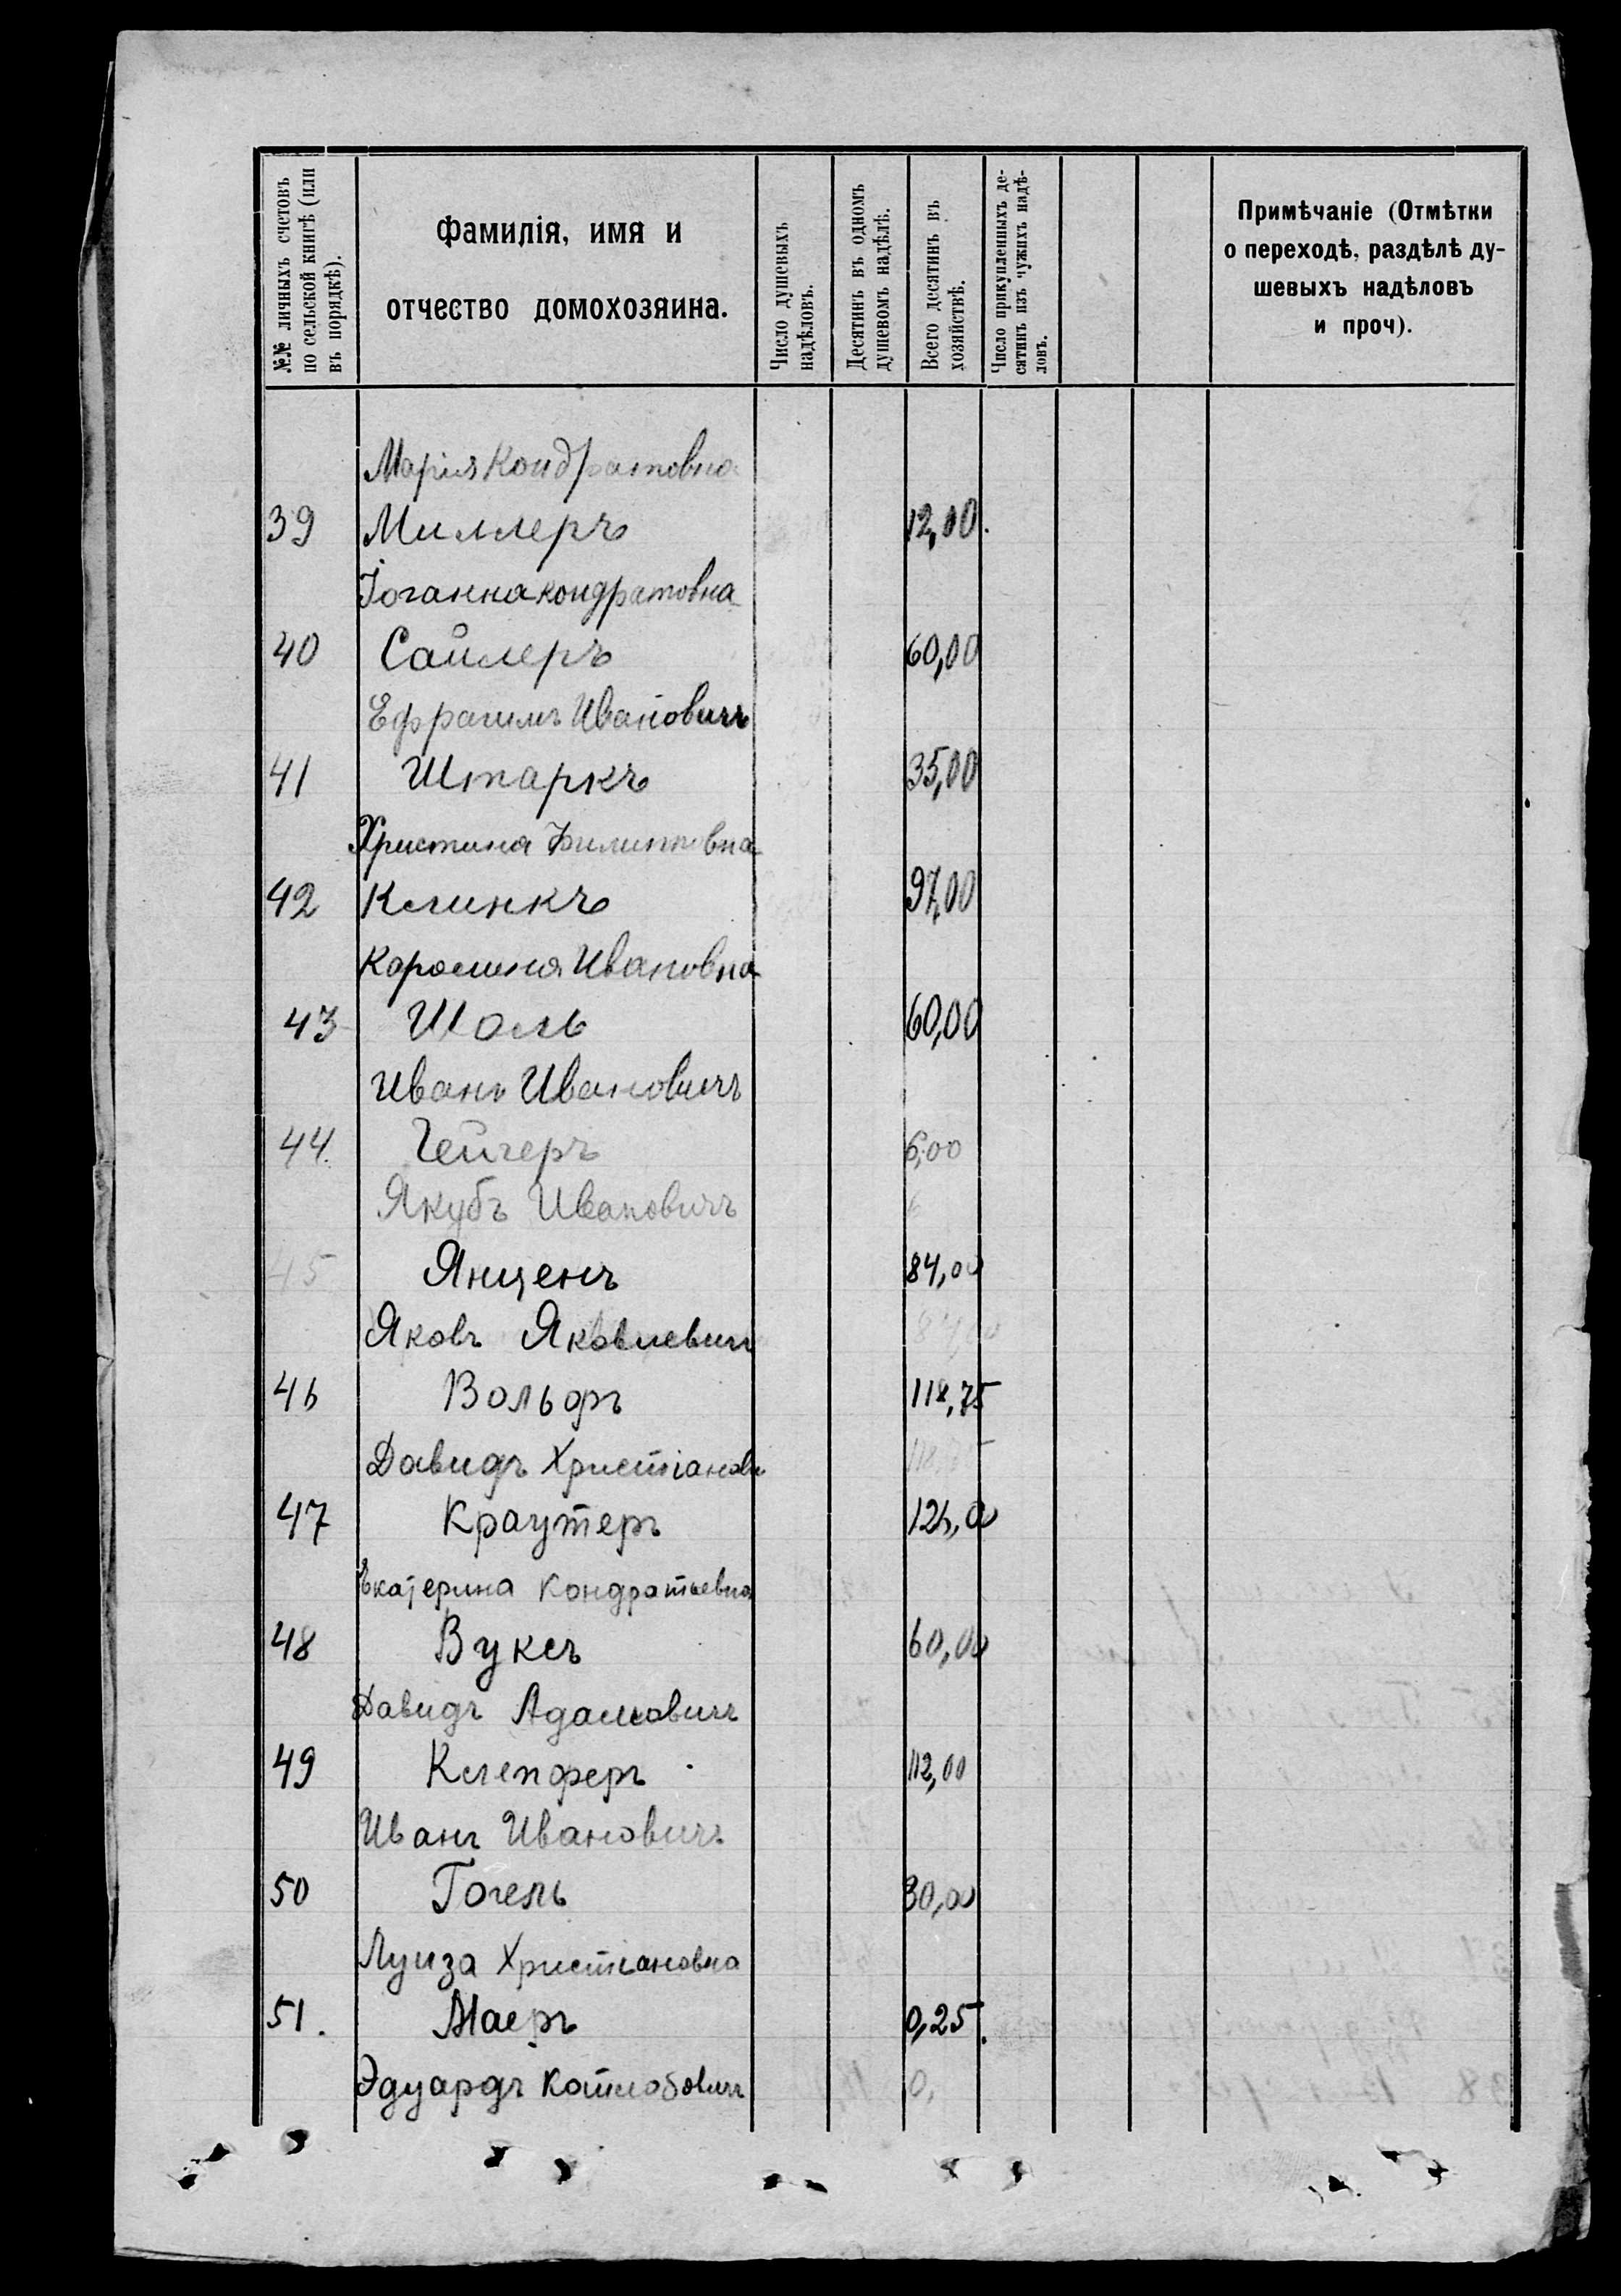 №№ личныхъ счетовъ
по сельской книгѣ (или
въ порядкѣ).
Фамилія, имя и
отчество домохозяина.
Число душевыхъ
надѣловъ.
Десятинъ въ одномъ
душевомъ надѣлѣ.
Всего десятинъ въ
хозяйствѣ.
Число прикупленныхъ де-
сятинъ изъ чужихъ надѣ-
ловъ.
Примѣчаніе (Отмѣтки
о переходѣ, раздѣлѣ ду-
шевыхъ надѣловъ
и проч).
Марія Кондратовна
39 Миллеръ 12,00.
Іоганна кондратовна
40 Сайлеръ 60,00
Ефраимъ Ивановичъ
41 Штаркъ 35,00
Христина Филиповна
42 Клинкъ 97,00
Каролина Ивановна
43 Шоль 60,00
Иванъ Ивановичъ
44. Гейгеръ 6,00
Якубъ Ивановичъ 6
45 Янценъ 84,00
Яковъ Яковлевичъ 84,00
46 Вольфъ 118,75
Давидъ Христіанов 118,75
47 Краутеръ
Екатерина Кондратьевна
48 Вуксъ 60,00
Давидъ Адамовичъ
49 Клепферъ 112,00
Иванъ Ивановичъ
50 Гогель 30,00
Луиза Христіановна
51. Маеръ 0,25.
Эдуардъ Котлобовичъ 0,